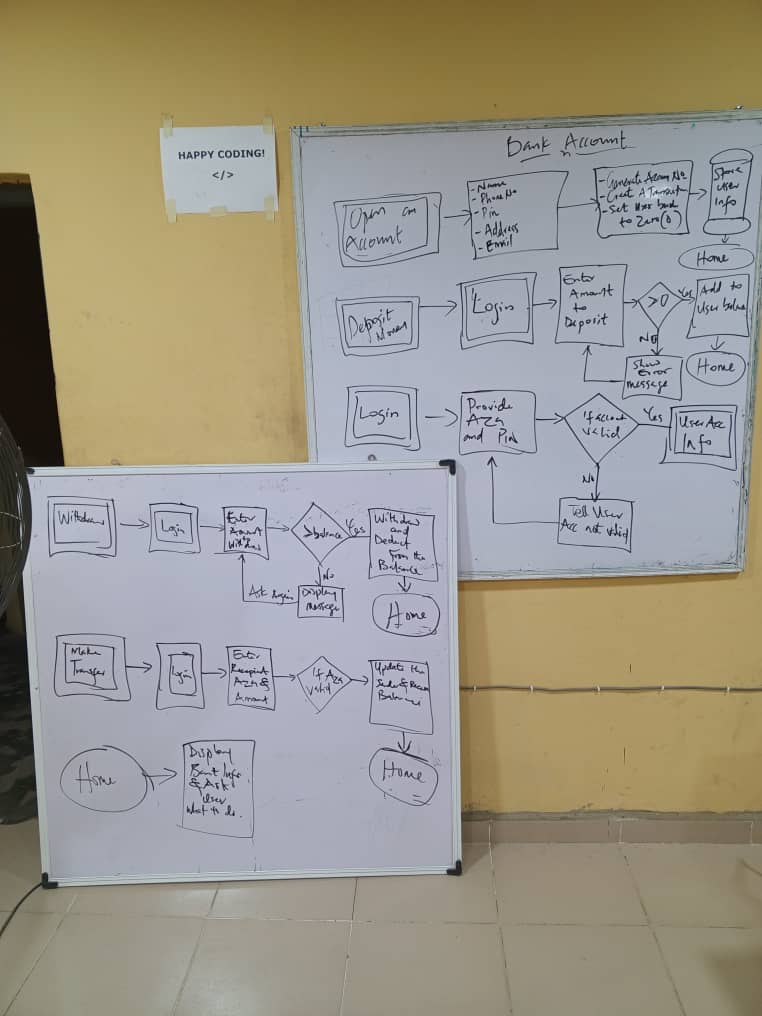 HAPPY CODING!
</>
Bank Account
Open an
Account
- Name
- Phone No
- Pin
- Address
- Email
- Generate Accou No
- Creat A
- Set User
to Zero(0)
Store
User
Info
Home
Deposit
Login
Enter
Amount
to
Deposit
>0
Yes
Add to
User
Home
No
Show
Error
message
Login
Provide
Aza
and Pin
if
valid
Yes
User Acc
Info
No
Tell User
Acc not valid
Withdraw
Login
Enter
Amount
to
>balance
Yes
Withdraw
and
Deduct
from the
Balance
No
Display
message
Ask Again
Home
Make
Transfer
Login
Enter
Aza &
Amount
if Aza
valid
Update the
Sender &
Home
Home
Display
Bank Info
& Ask
User
what to do.